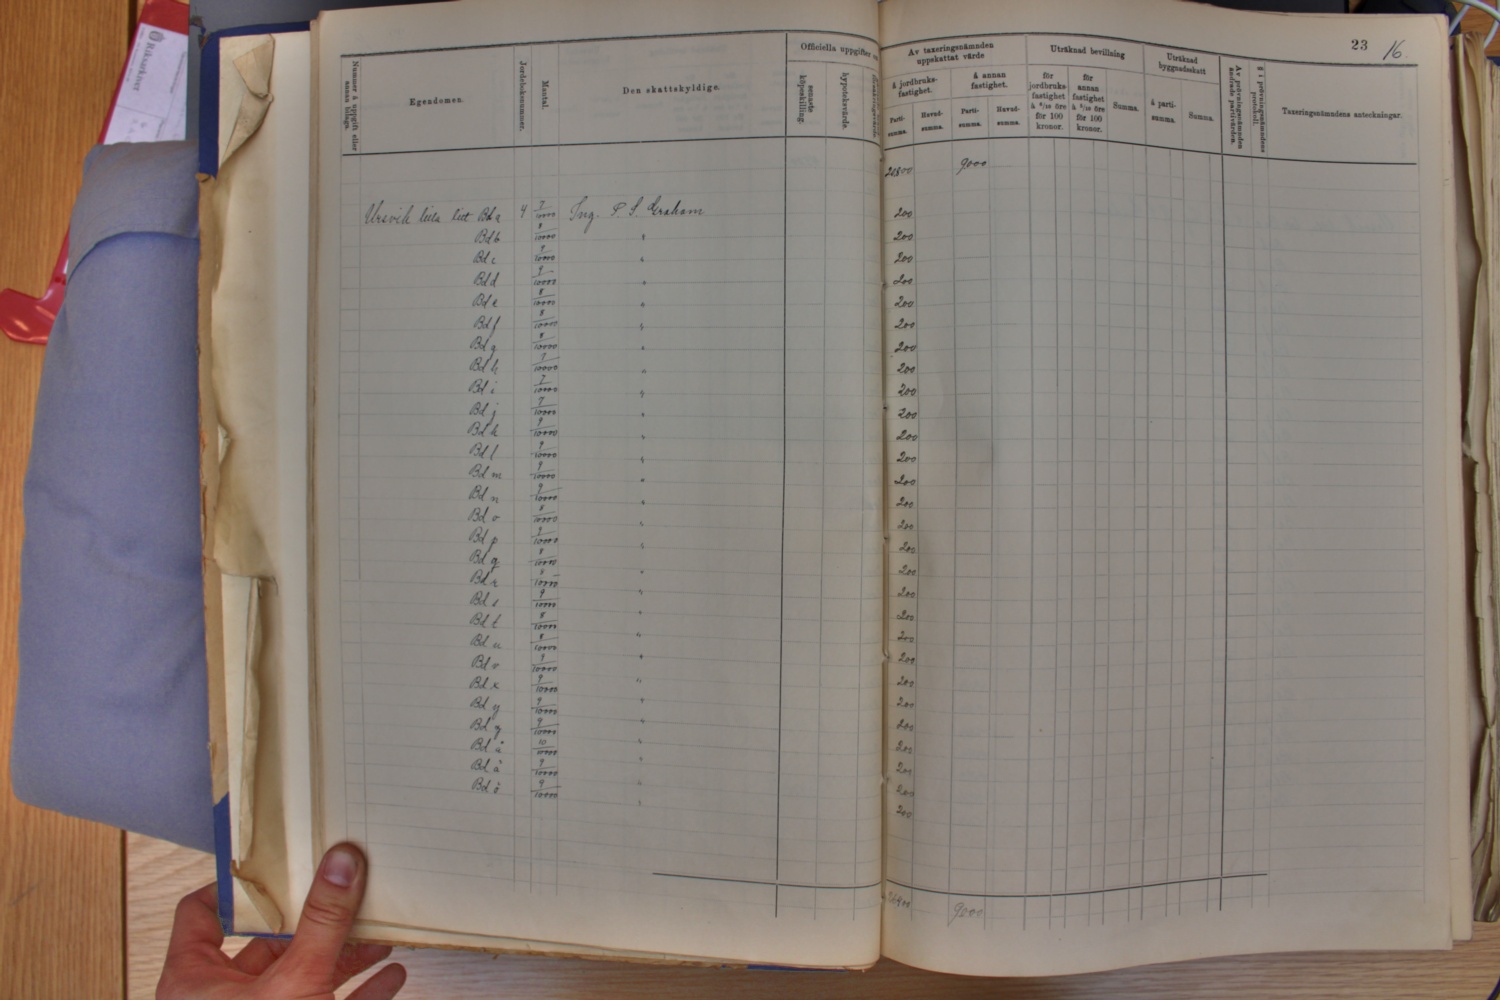 Riksarkivet
23
16.
Nummer å uppgift eller annan bilaga.
Egendomen.
Jordeboksnummer.
Mantal.
Den skattskyldige.
Officiella uppgifter
senaste köpeskilling.
hypoteksvärde.
Av taxeringsnämnden uppskattat värde
å jordbruksfastighet.
å annan fastighet.
Partisumma.
Huvudsumma.
Partisumma.
Huvudsumma.
Uträknad bevillning
för jordbruksfastighet å 6/10 öre för 100 kronor.
för annan fastighet å 5/10 öre för 100 kronor.
Summa.
Uträknad byggnadsskatt
å partisumma.
Summa.
Av prövningsnämnden ändrade partivärden.
§ i prövningsnämndens protokoll.
Taxeringsnämndens anteckningar.
9000
Ursvik lilla litt Bd a 4 7/10000 Ing. P. S. Graham 200
Bd b 8/10000 " 200
Bd c 9/10000 " 200
Bd d 9/10000 " 200
Bd e 8/10000 " 200
Bd f 8/10000 " 200
Bd g 8/10000 " 200
Bd h 7/10000 " 200
Bd i 7/10000 " 200
Bd j 7/10000 " 200
Bd k 9/10000 " 200
Bd l 9/10000 " 200
Bd m 9/10000 " 200
Bd n 9/10000 " 200
Bd o 8/10000 " 200
Bd p 9/10000 " 200
Bd q 8/10000 " 200
Bd r 8/10000 " 200
Bd s 9/10000 " 200
Bd t 8/10000 " 200
Bd u 8/10000 " 200
Bd v 9/10000 " 200
Bd x 9/10000 " 200
Bd y 9/10000 " 200
Bd z 9/10000 " 200
Bd å 10/10000 " 200
Bd ä 9/10000 " 200
Bd ö 9/10000 " 200
200
9000